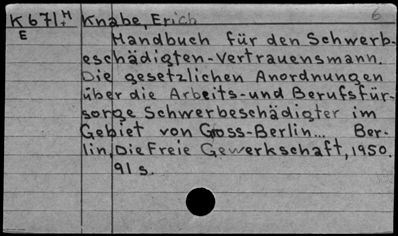 K 671.M Knabe, Erich 6
E Handbuch für den Schwerb-
eschädigten-Vertrauensmann.
Die gesetzlichen Anordnungen
über die Arbeits- und Berufsfür-
sorge Schwerbeschädigter im
Gebiet von Gross-Berlin... Ber-
lin, Die Freie Gewerkschaft, 1950.
91 s.